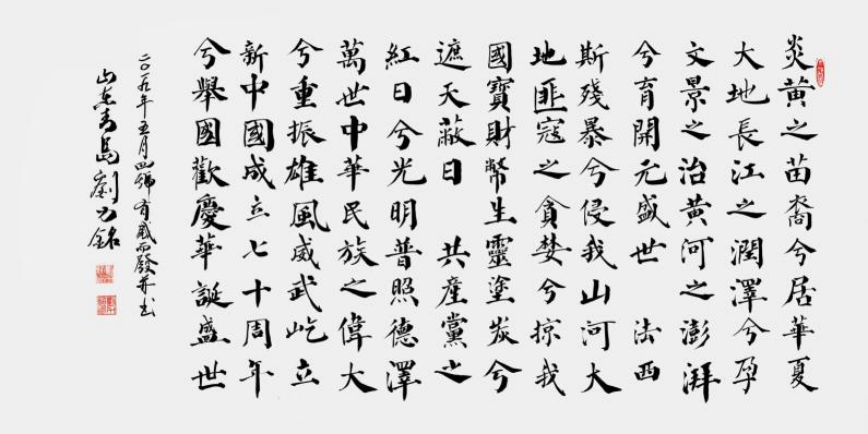 炎黄之苗裔兮居華夏
大地長江之潤澤兮孕
文景之治黄河之澎湃
兮育開元盛世 法西
斯殘暴兮侵我山河大
地匪寇之貪婪兮掠我
國寶財幣生靈塗炭兮
遮天蔽日 共産黨之
紅日兮光明普照德澤
萬世中華民族之偉大
兮重振雄風威武屹立
新中國成立七十周年
兮舉國歡慶華誕盛世
二〇一九年五月四號有感而發并书
山东青島劉銘